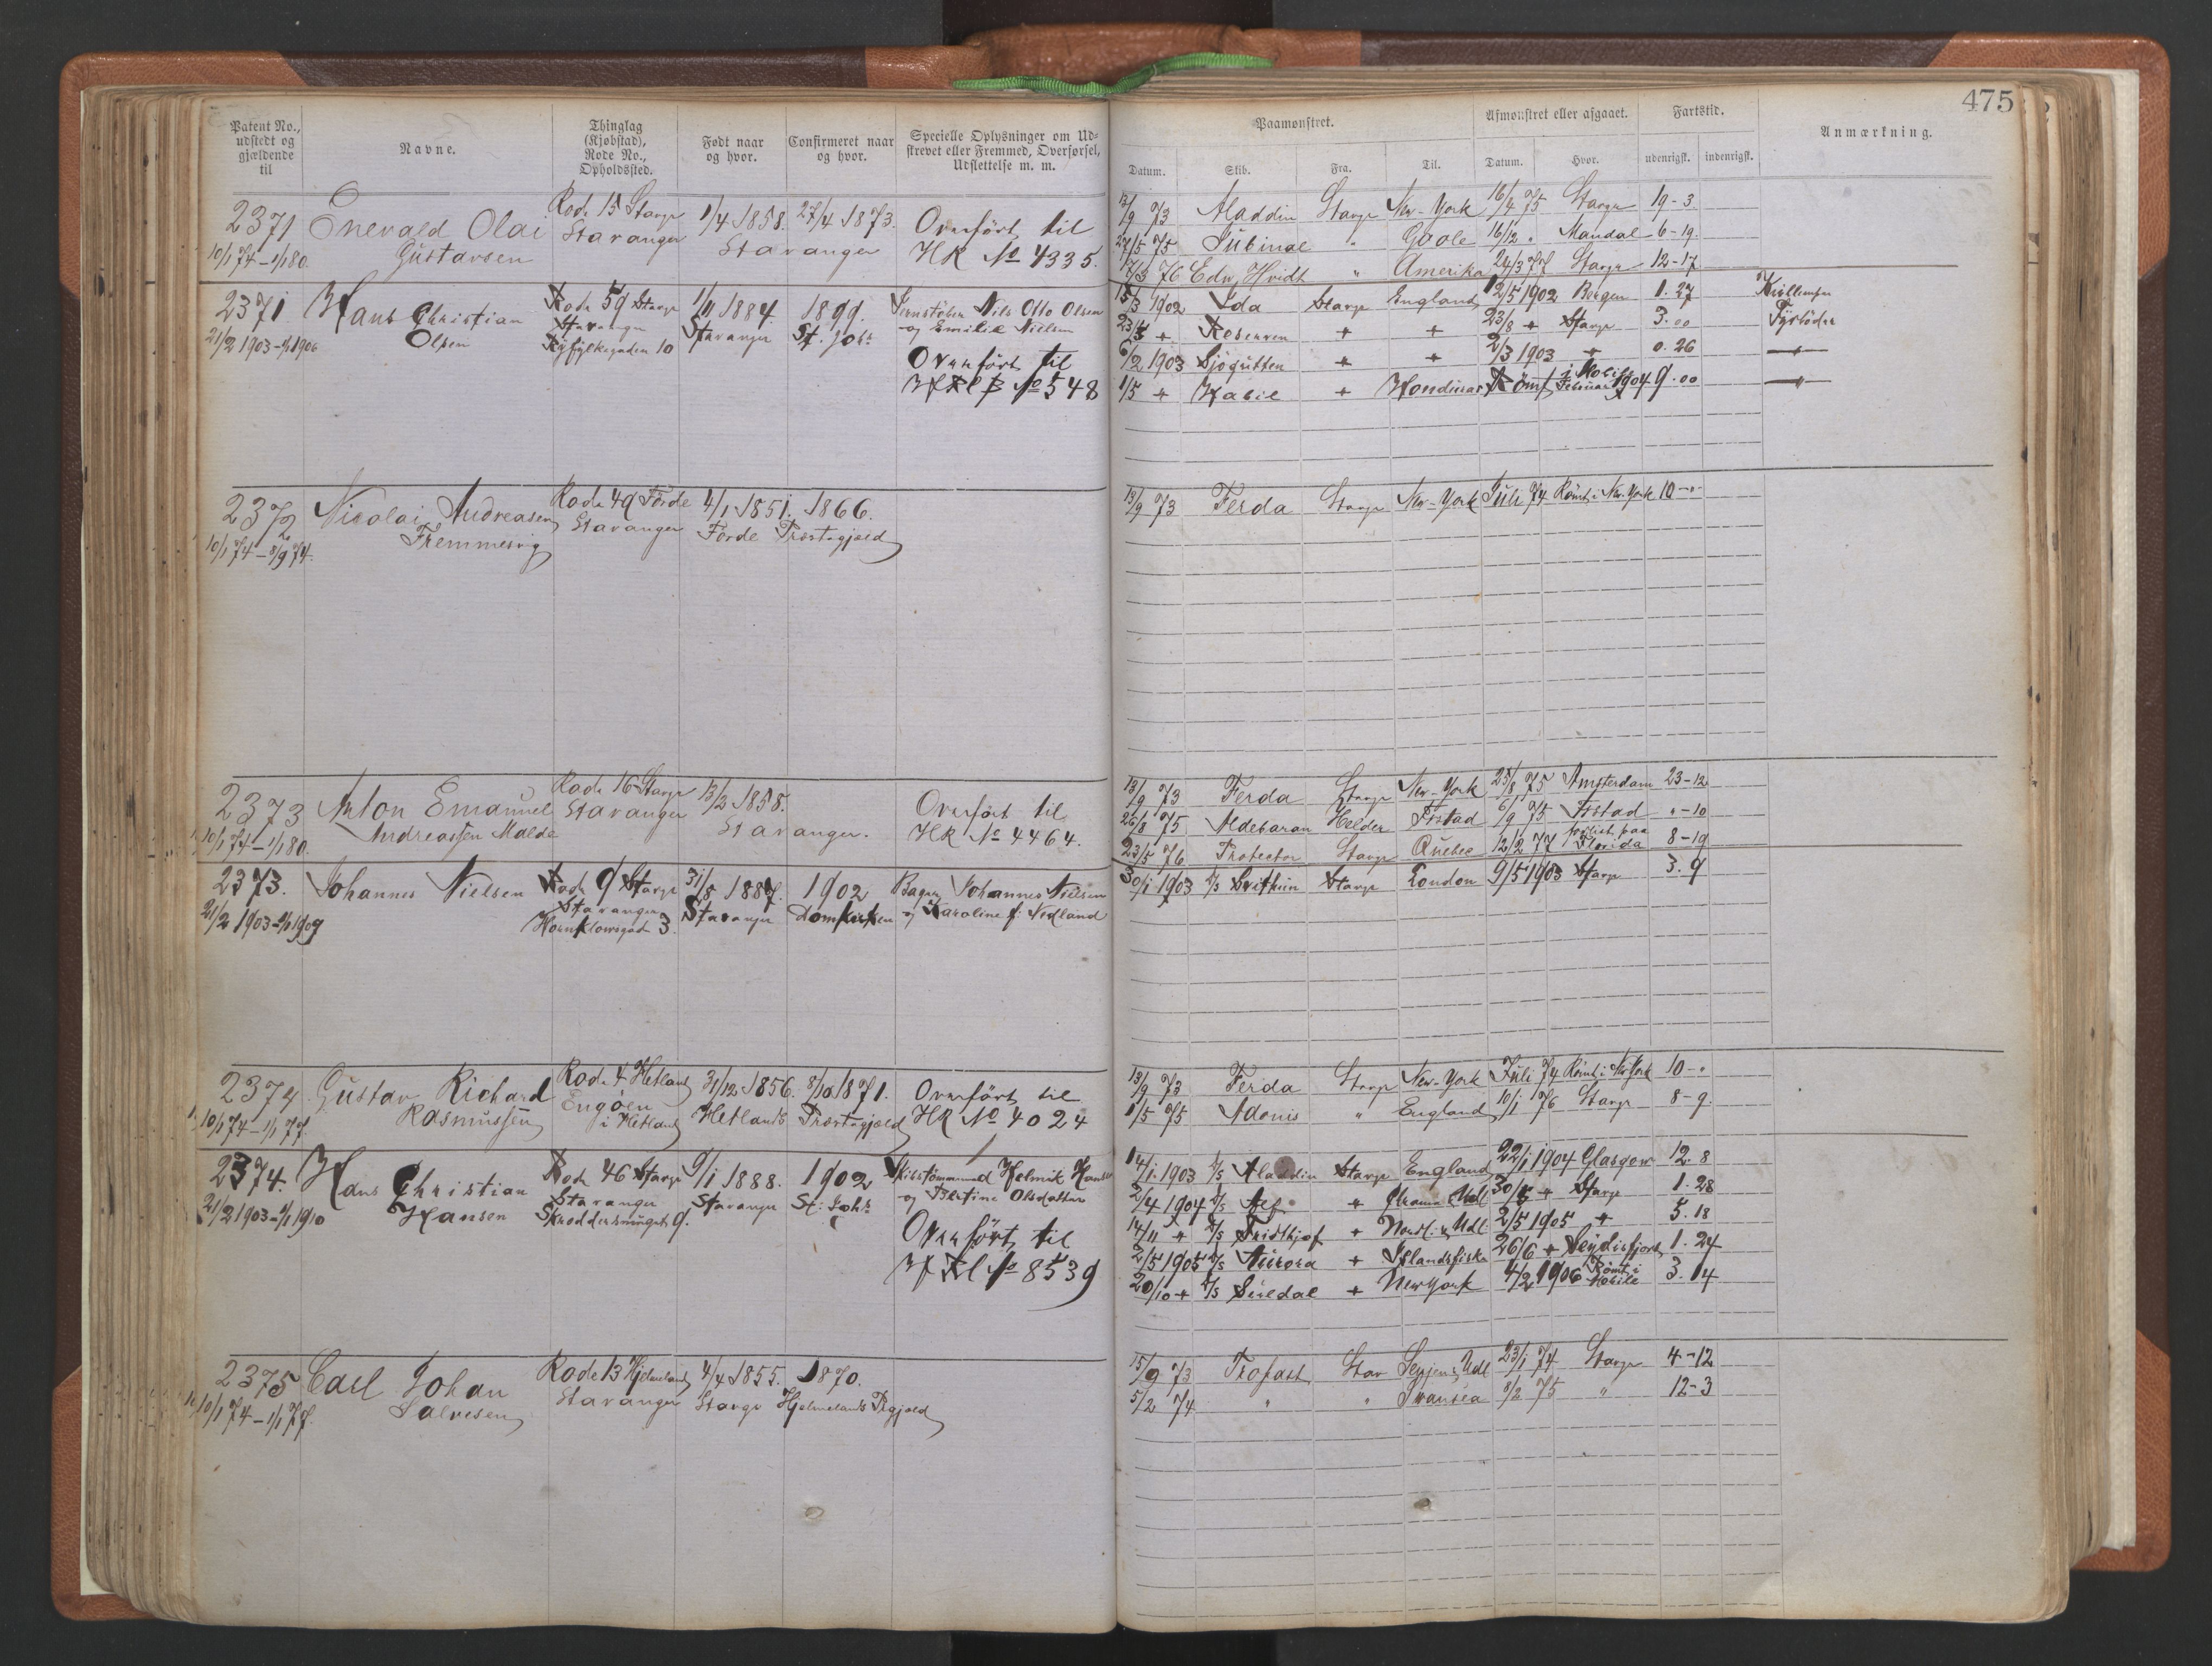 475
Patent No., udstedt og gjældende til
Navne.
Thinglag (Kjøbstad), Rode No., Opholdssted.
Født naar og hvor.
Confirmeret naar og hvor.
Specielle Oplysninger om Udskrevet eller Fremmed, Overførsel, Udslettelse m. m.
Paamonstret.
Afmonstret eller afgaaet.
Fartstid.
Anmærkning.
Datum. Skib. Fra. Til. Datum. Hvor. udenrigsk. indenrigsk.
2371 Enevald Olai Rode 15 Stavgr 1/4 1858. 27/4 1873. Overført til
10/1 74 - 1/1 80. Gustavsen Stavanger Stavanger HR No 4335.
13/9 73 Aladdin Stavgr New-York 16/4 75 Stavgr 19-3
27/5 75 Jubinal " Goole 16/12 " Mandal 6-19.
17/3 76 Edv. Hvidt " Amerika 24/3 77 Stavgr 12-17
2371 Hans Christian Rode 59 Stavgr 1/11 1884 1899. Nils Otto Olsen
21/2 1903 - 1/1 1906 Olsen Stavanger Stavanger St. Johs og Emilie Nielsen
Ryfylkegaden 10 Overført til
No 548
15/3 1902 Ida Stavgr England 12/5 1902 Bergen 1. 27
+ + + 23/8 + Stavgr 3. 00 Fyrbøder
6/2 1903 Sjøgutten + + 2/3 1903 + 0. 26
1/5 + + Honduras Rømt i Mobile Februar 1904 9. 00
2372 Nicolai Andreasen Rode 49 Førde 4/1 1851. 1866.
10/1 74 - 8/9 74. Stavanger Førde Præstegjæld
13/9 73 Ferda Stavgr New-York Juli 74 Rømt i New-York 10-"
2373 Anton Emanuel Rode 16 Stavgr 13/2 1858. Overført til
10/1 74 - 1/1 80. Andreassen Malde Stavanger Stavanger. HR No 4464.
13/9 73 Ferda Stavgr New-York 25/8 75 Amsterdam 23-12
26/8 75 Aldebaran Helder Fstad 6/9 75 Fstad "-10
23/5 76 Protector Stavgr Quebec 12/2 77 forlist paa Florida 8-19
2373. Johannes Nielsen Rode 9 Stavgr 31/8 1887. 1902 Bager Johannes Nielsen
21/2 1903 - 1/1 1909 Stavanger Stavanger Domkirken og Karoline f. Nedland
3.
30/1 1903 D/S Svithun Stavgr London 9/5 1903 Stavgr 3. 9
2374 Gustav Richard Rode 4 Hetland 31/12 1856. 8/10 1871. Overført til
10/1 74 - 1/1 77. Rasmussen Engøen i Hetland Hetlands Præstegjæld HR No 4024
13/9 73 Ferda Stavgr New-York Juli 74 Rømt i New York 10-"
1/5 75 Adonis " England 10/1 76 Stavgr 8-9.
2374. Hans Christian Rode 46 Stavgr 9/1 1888. 1902 Skibstømmermd Helmik Hansen
21/2 1903 - 1/1 1910 Hansen Stavanger Stavanger St. Johs og Bertine Olsdatter
Skreddersmuget 9. Overført til
No 8539
14/1. 1903 D/S Aladdin Stavgr England 22/1 1904 Glasgow 12. 8
2/4 1904 D/S Alf + 30/5 + Stavgr 1. 28
14/11 + D/S Fridthjof + 2/5 1905 + 5. 18
2/5 1905 D/S Aurora + Islandsfiske 26/6 + Seydisfjord 1. 24
20/10 + D/S Suldal + New York 4/2 1906 Rømt i Mobile 3. 14
2375 Carl Johan Rode 13 Hjelmeland 4/4 1855. 1870.
10/1 74 - 1/1 77. Salvesen Stavanger Stavgr Hjelmelands Prgjæld
15/9 73 Trofast Stav 23/1 74 Stavgr 4-12
5/2 74 " " Svansea 8/2 75 " 12-3